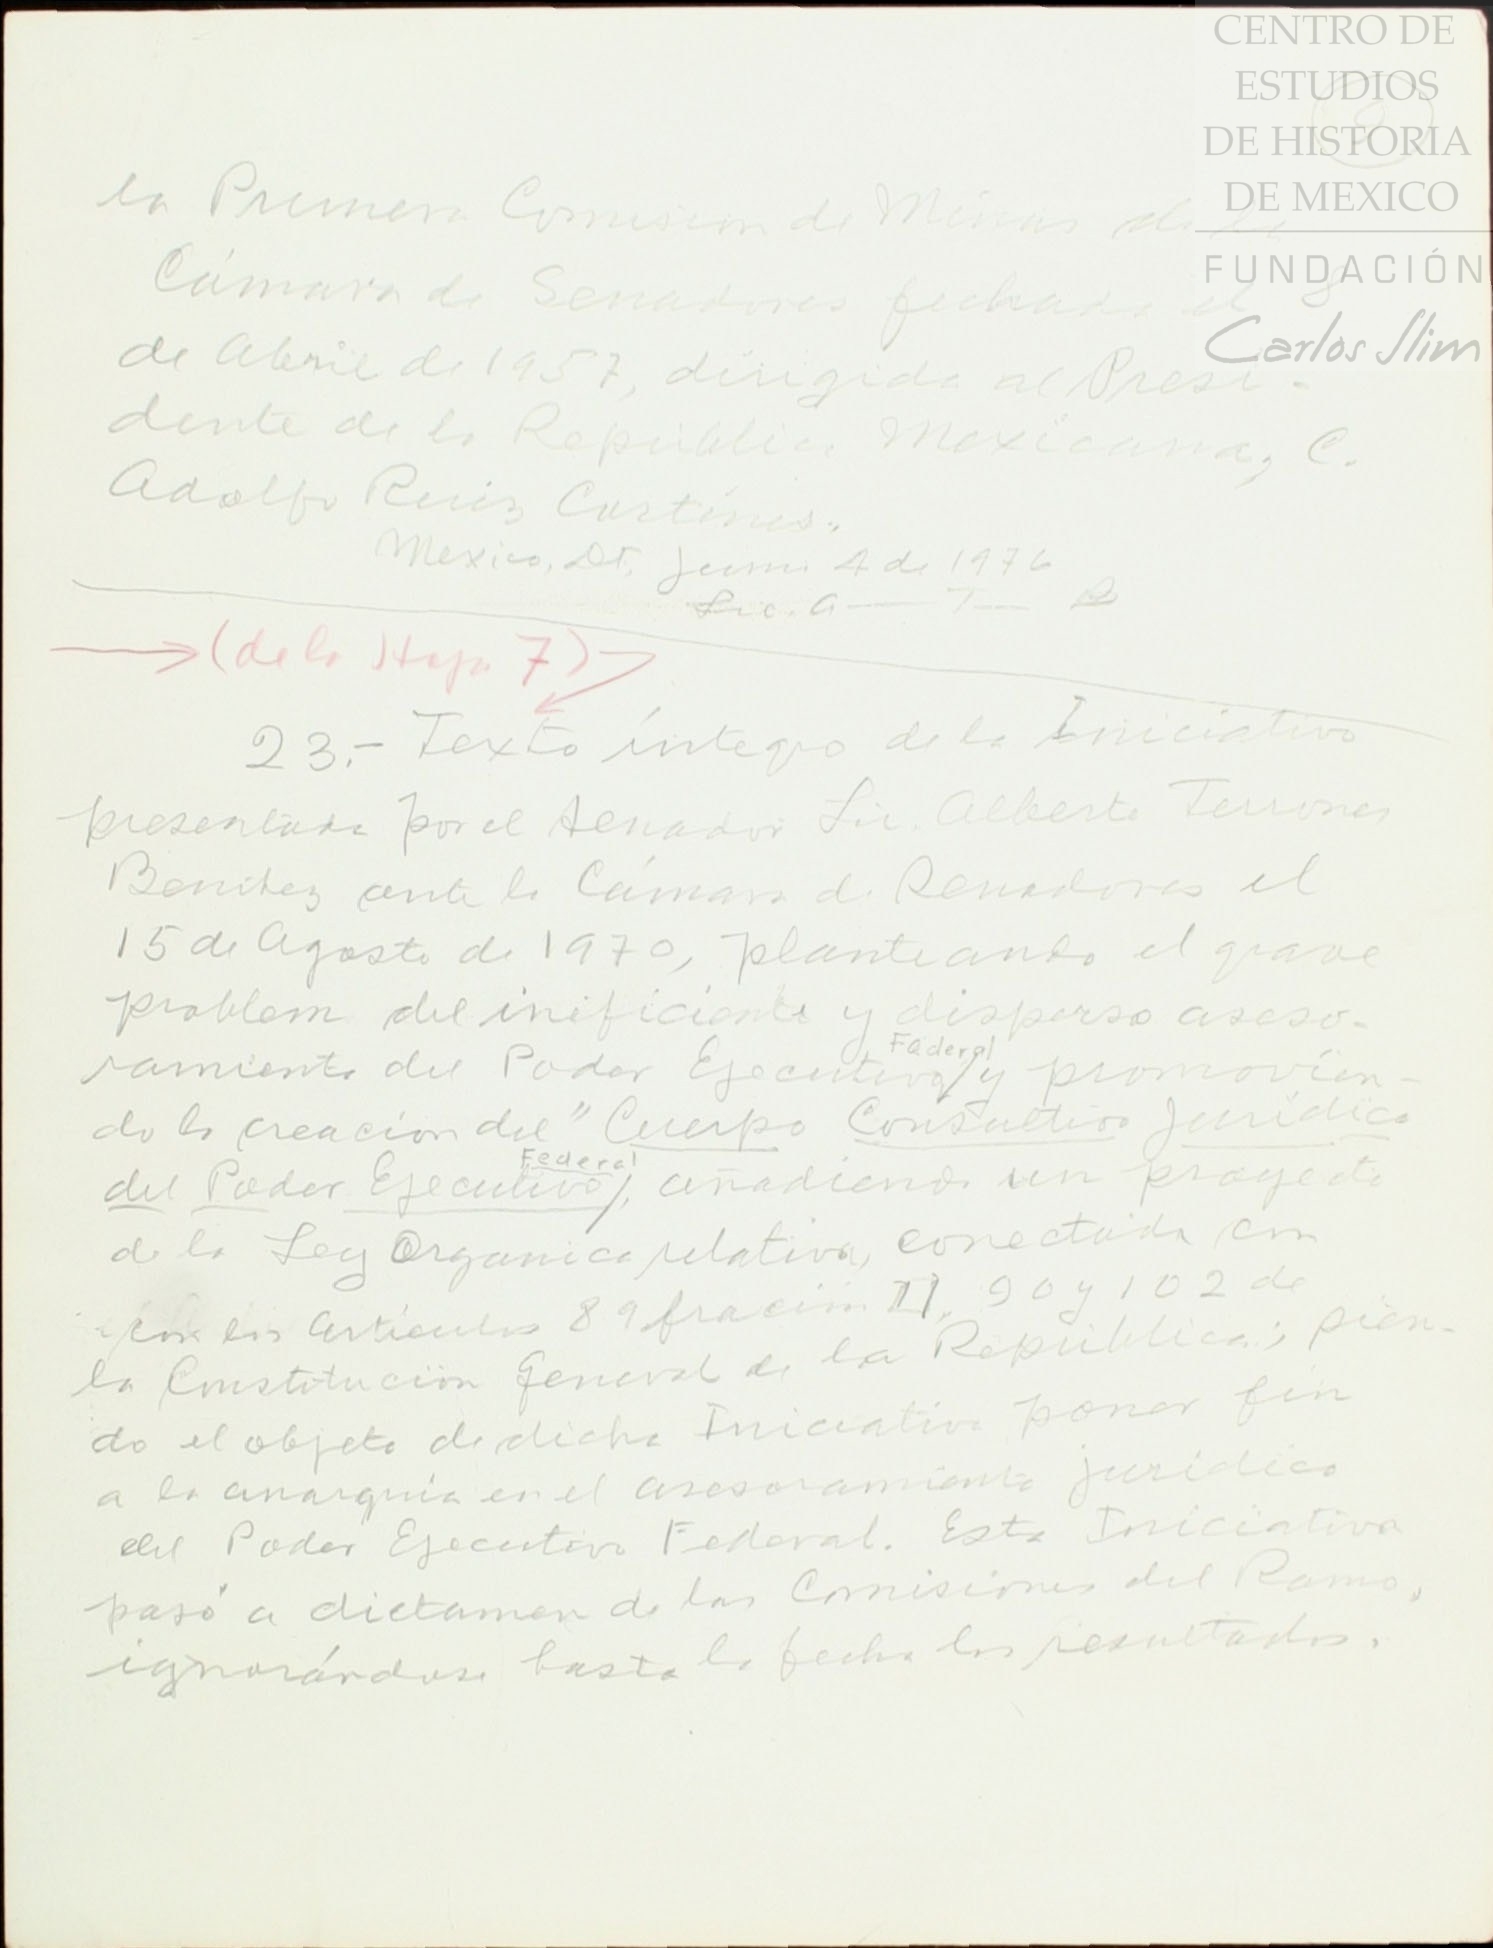 CENTRO DE
ESTUDIOS
DE HISTORIA
DE MEXICO
FUNDACIÓN
Carlos Slim
la Primera Comision de Minas de la
Cámara de Senadores fechada el 8
de Abril de 1957, dirigida al Presi-
dente de la República Mexicana, C.
Adolfo Ruiz Cortines.
Mexico, D.F. Junio 4 de 1976
Lic. A— T— B
(de la Hoja 7)
23.- Texto íntegro de la Iniciativa
presentada por el Senador Lic. Alberto Terrones
Benitez ante la Cámara de Senadores el
15 de Agosto de 1970, planteando el grave
problema del ineficiente y disperso aseso-
ramiento del Poder Ejecutivo Federal y promovien-
do la creación del "Cuerpo Consultivo Jurídico
del Poder Ejecutivo Federal, añadiendo un proyecto
de la Ley Organica relativa, conectada con
con los Artículos 89 fración II, 90 y 102 de
la Constitución General de la República; sien-
do el objeto de dicha Iniciativa poner fin
a la anarquía en el asesoramiento jurídico
del Poder Ejecutivo Federal. Esta Iniciativa
pasó a dictamen de las Comisiones del Ramo,
ignorándose hasta la fecha los resultados.